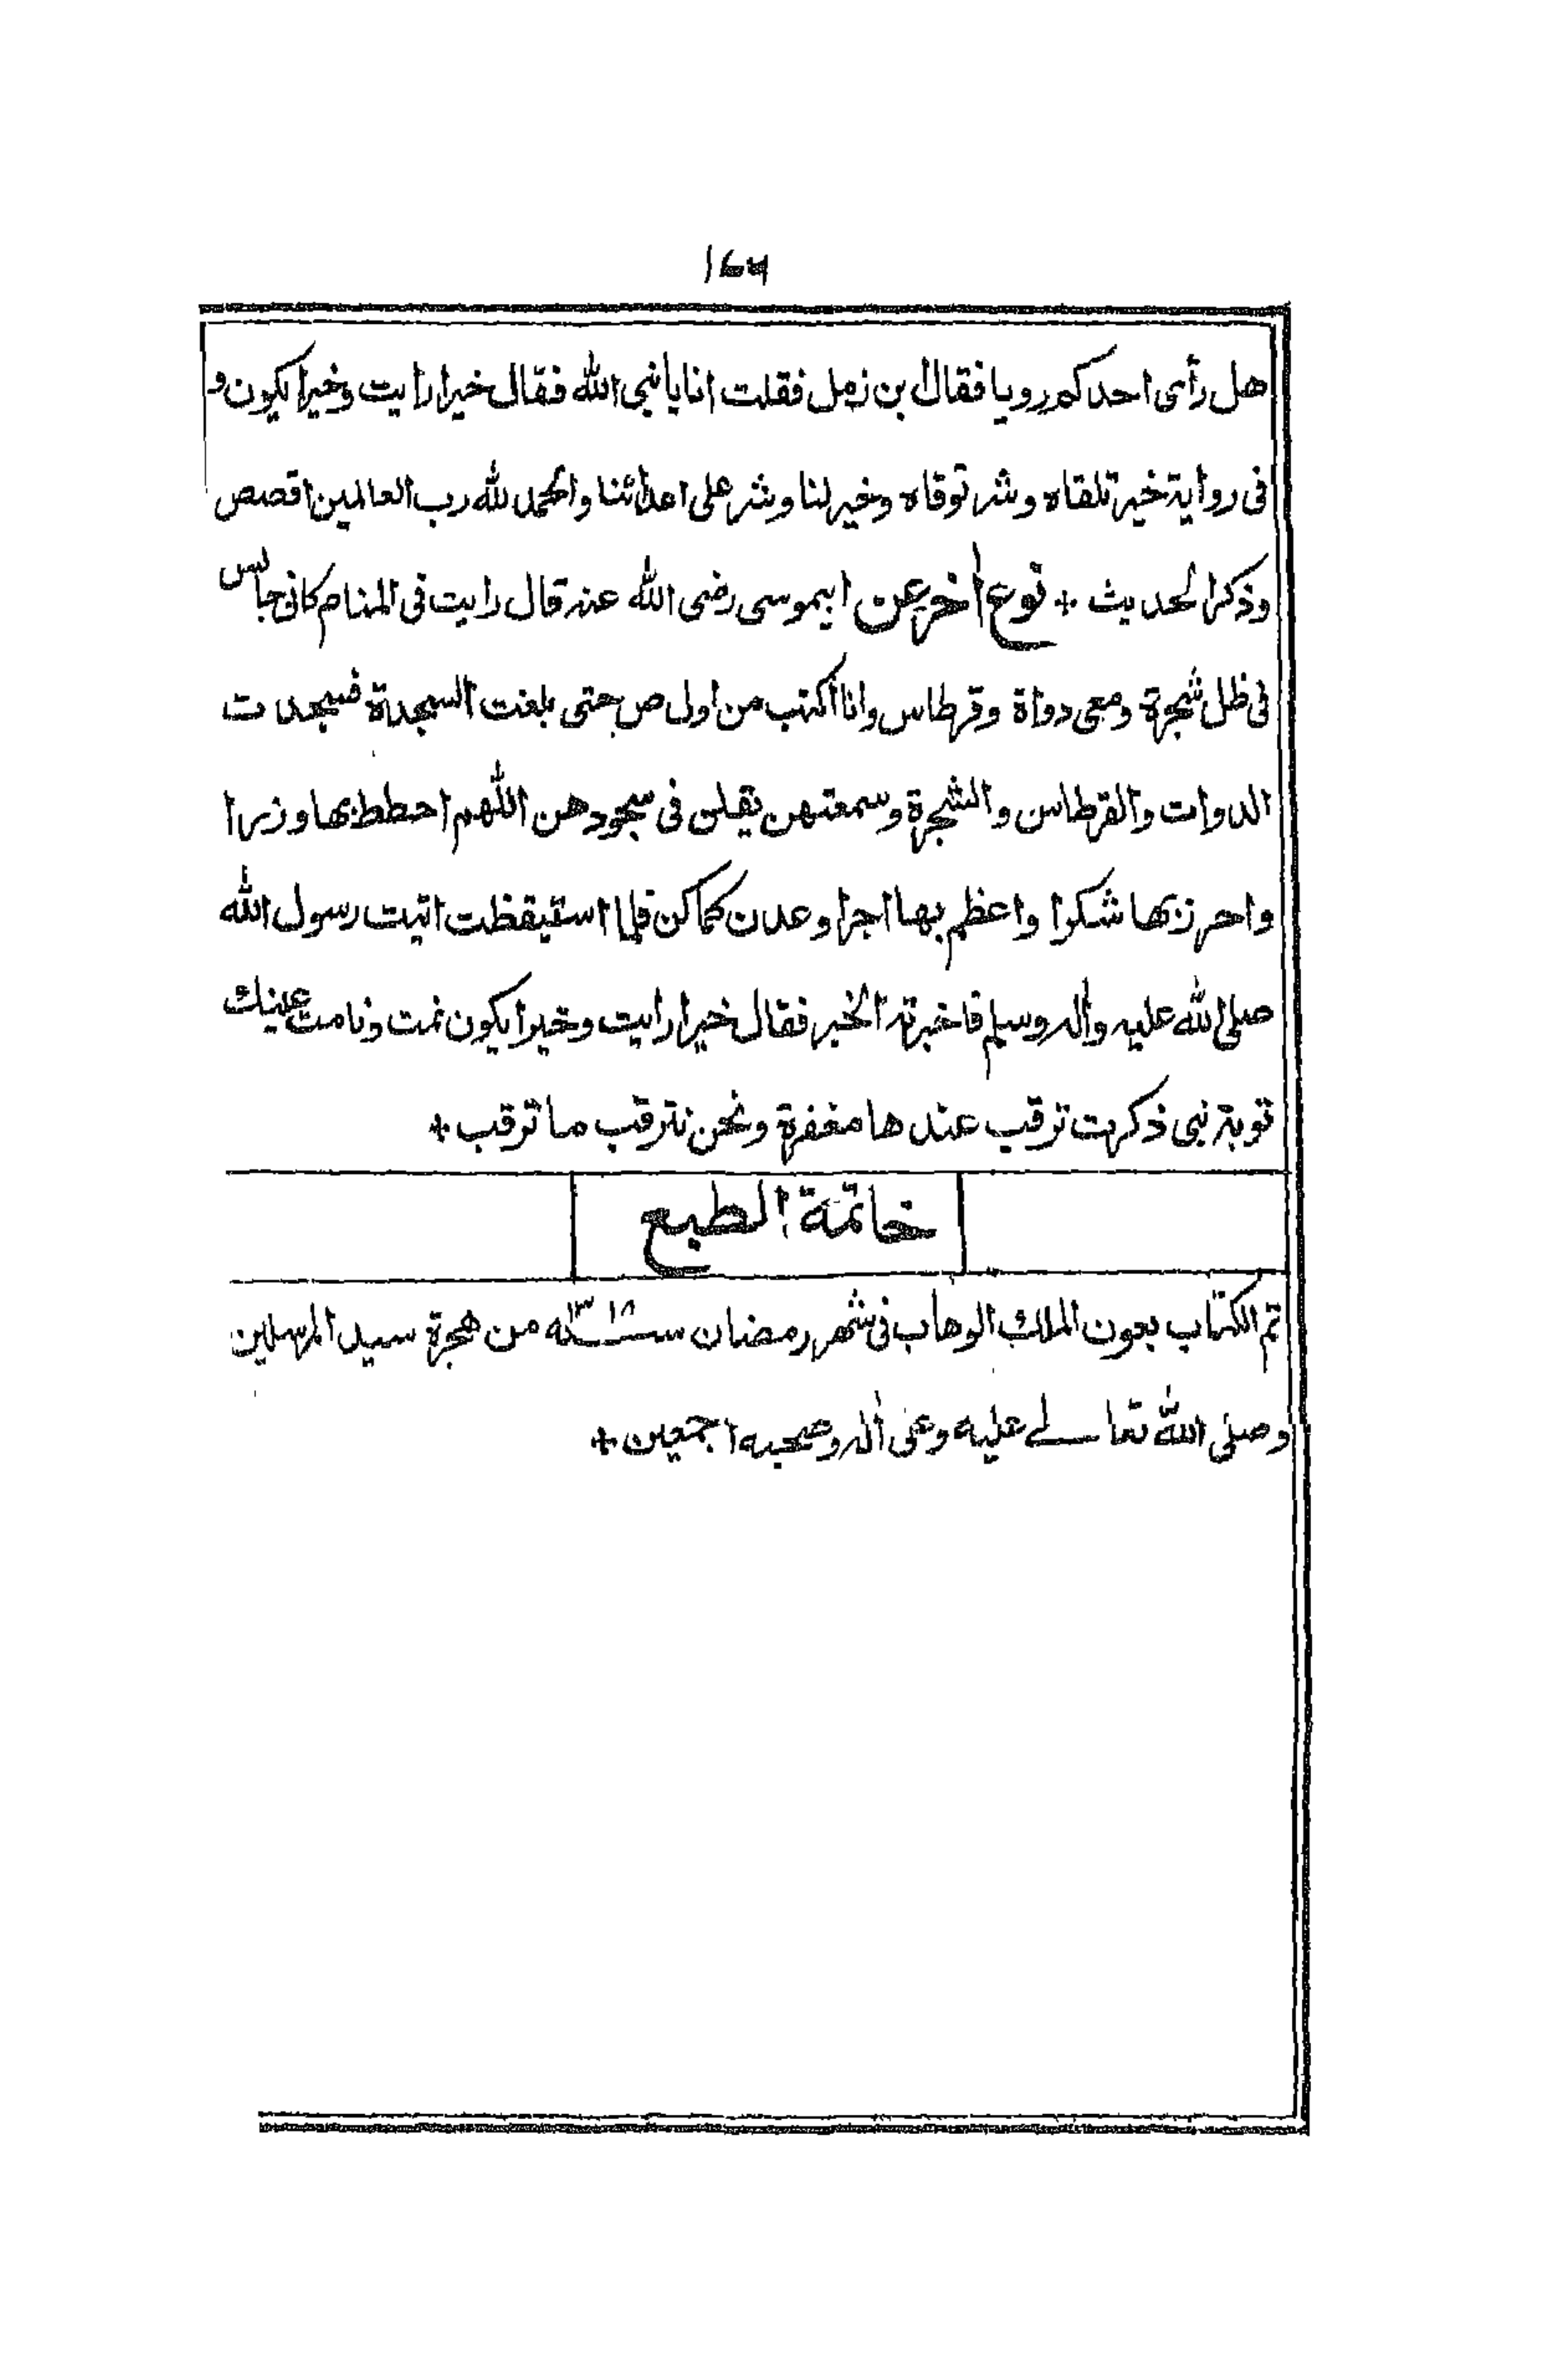 ۱۷۶
هل رأى احدكم رويا فقال بن زمل فقلت انا يا نبى الله فقال خيرا رايت وخيرا يكون و
فى رواية خير تلقاه وشر توقاه وخير لنا وشر على اعدائنا والحمد لله رب العالمين اقصص
وذكر الحديث + نوع اٰخر عن ابيموسى رضى الله عنه قال رايت فى المنام كانى جالس
فى ظل شجرة ومعى دواة وقرطاس وانا اكتب من اول ص حتى بلغت السجدة فسجدت
الدوات والقرطاس والشجرة وسمعتهن يقلن فى سجودهن اللهم احطط بها وزرا
واحرز بها شكرا واعظم بها اجرا وعدن كما كن فلما استيقظت اتيت رسول الله
صلى الله عليه واٰله وسلم فاخبرته الخبر فقال خيرا رايت وخيرا يكون نمت ونامت عينك
توبة نبى ذكرت ترقب عندها مغفرة ونحن نترقب ما ترقب +
خاتمة الطبع
تم الكتاب بعون الملك الوهاب فى شهر رمضان سنة ۱۳۱۸ه من هجرة سيد المرسلين
وصلى الله تعالے عليه وعلى اٰله وصحبه اجمعين +